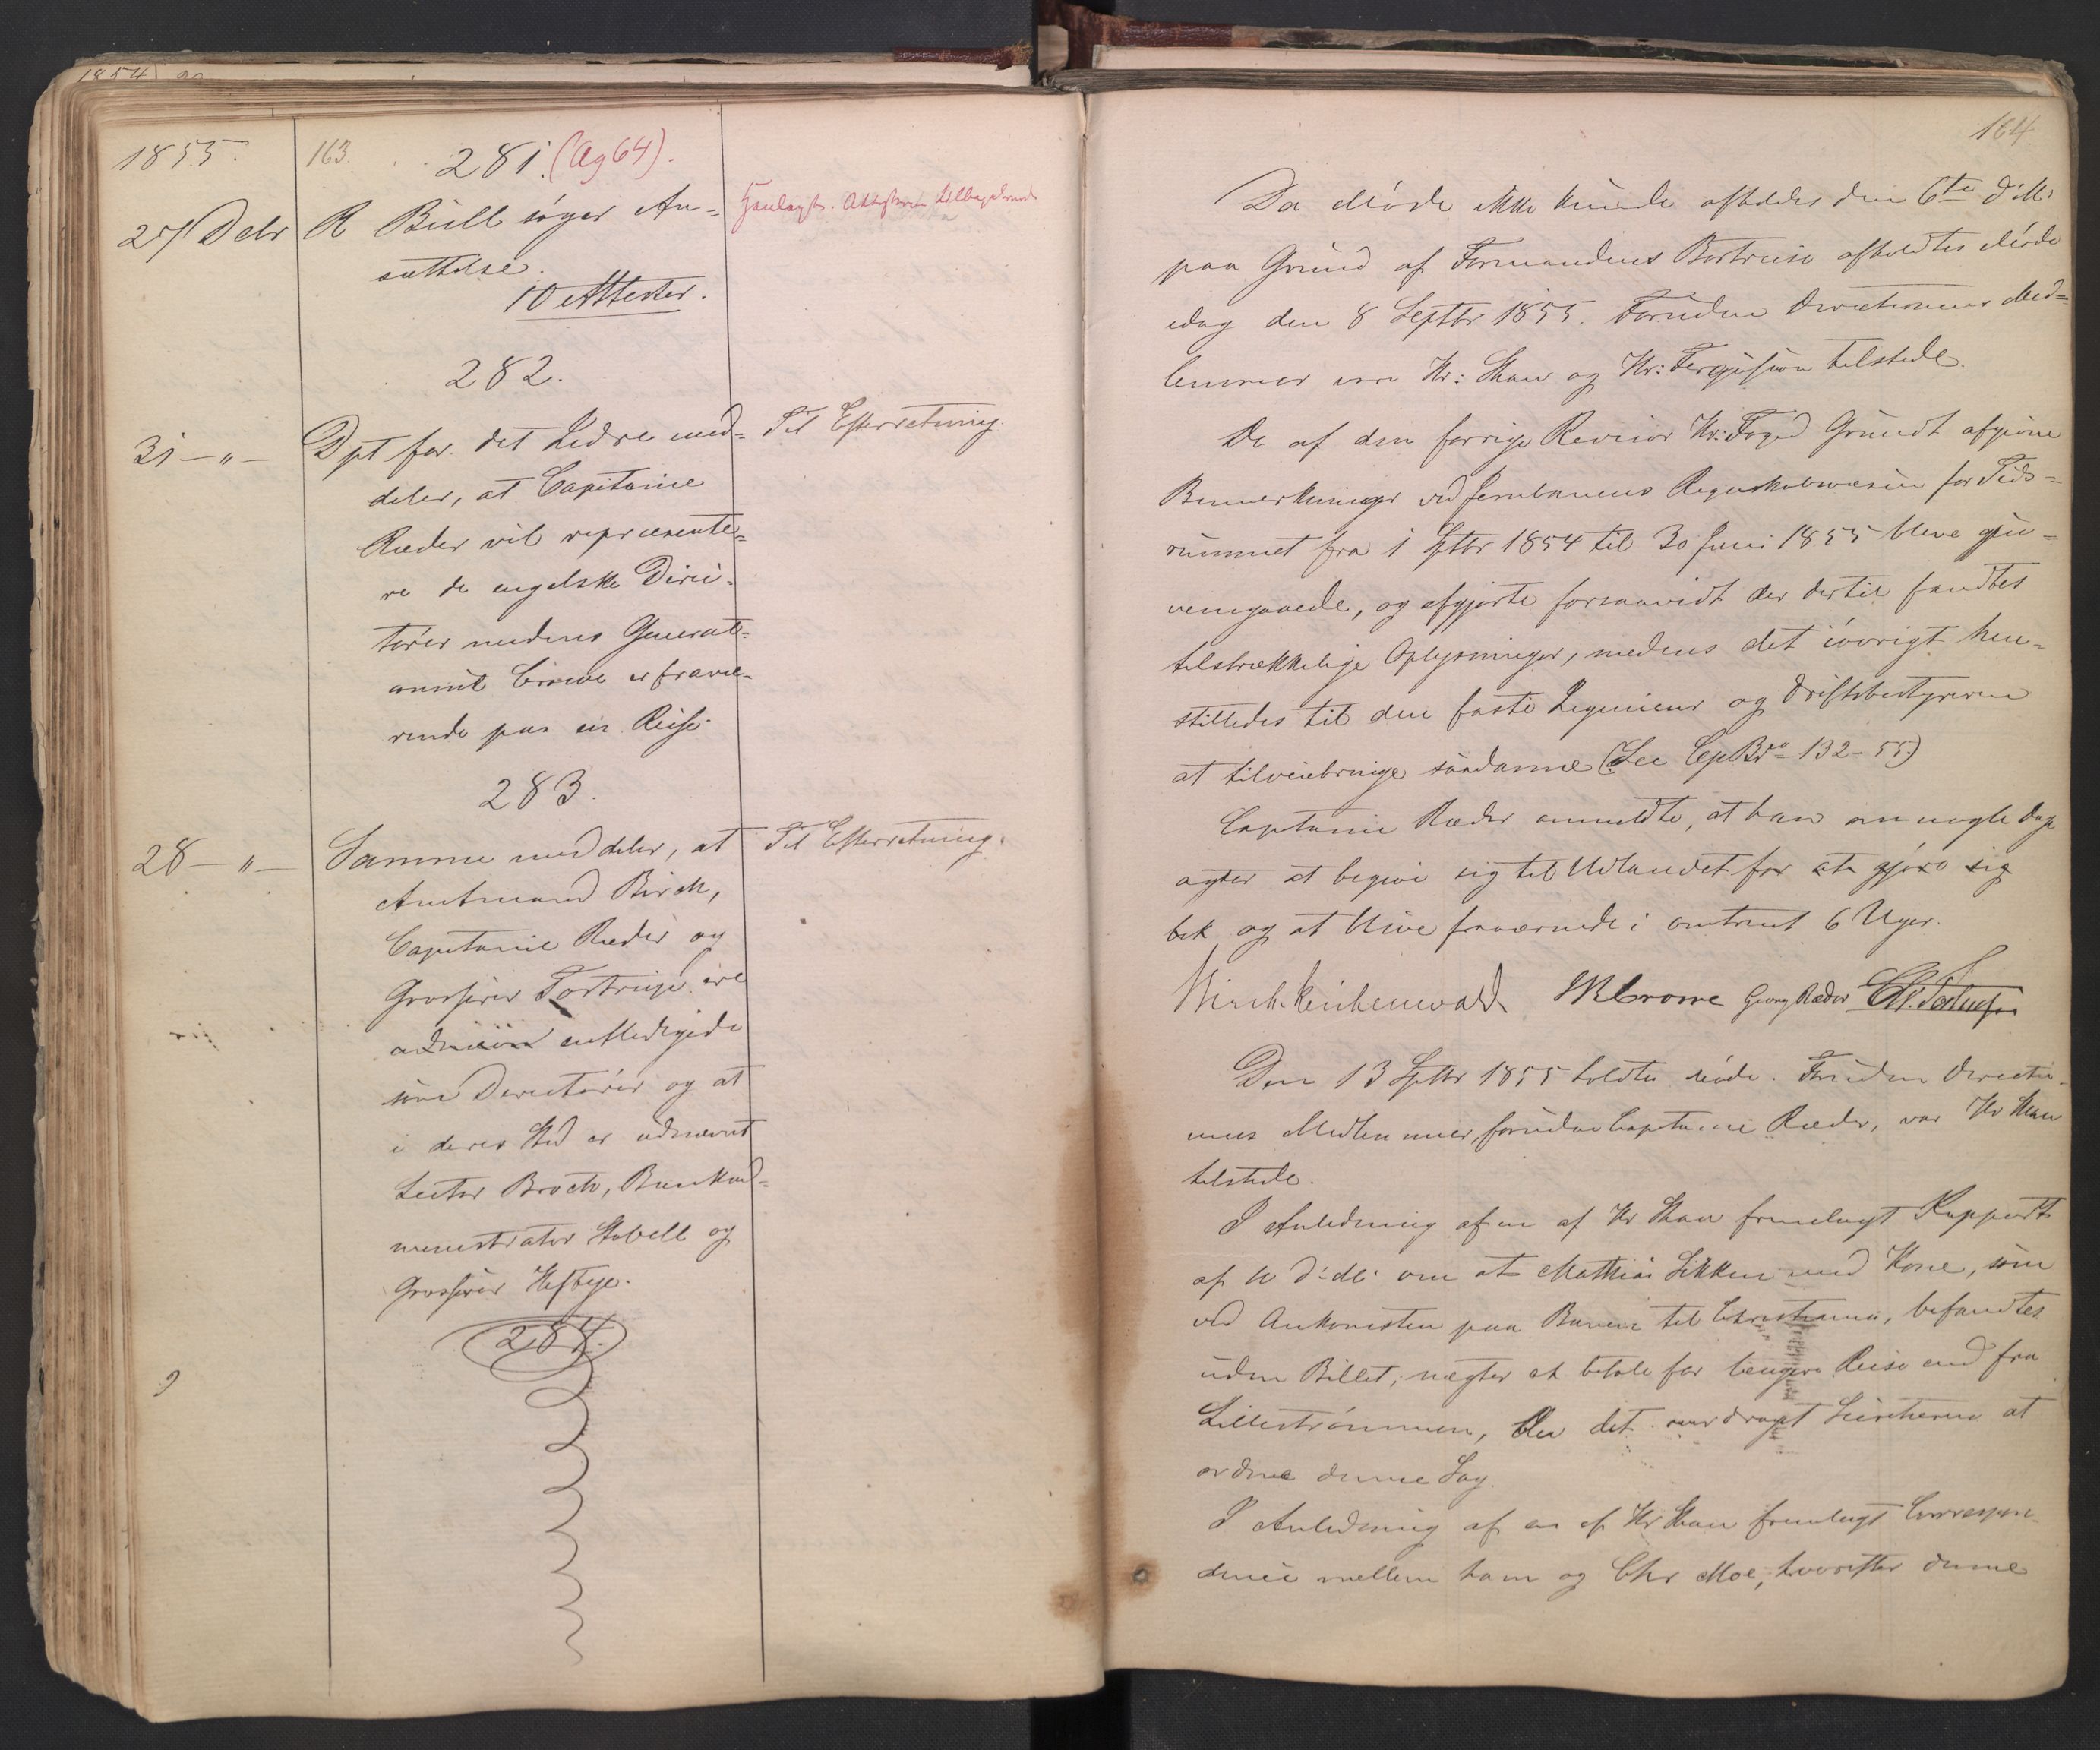 1854
1855.
163.
281. (Ag 64).
27 Debr
R Bull søger An=
sættelse.
10 Attester.
Henlagt. Attesterne tilbagesendt
282.
31 — " —
Dpt for det Indre med=
deler, at Capitaine
Ræder vil repræsente=
re de engelske Direc=
tører medens General=
consul Crowe er fravæ=
rende paa en Reise.
Til Efterretning
283.
28 — " —
Samme meddeler, at
Amtmand Birch,
Capitaine Ræder og
Grosserer Fortnsje ere
entledigede
som Directører og at
i deres Sted er udnævnt
Lector Broch, Bankad=
ministrator Kobell og
Grosserer Heftye.
Til Efterretning.
284.
164.
Da Møde ikke kunde afholdes den 6te d: M:
paa Grund af Formandens Bortreise afholdtes Møde
idag den 8 Septbr 1855. Foruden Directionens Med=
lemmer vare Hr: Shaw og Hr: Fergusson tilstede.
De af den forrige Revisor Hr: Foged Grundt afgivne
Bemærkninger ved Jernbanens Regnskabsvæsen for Tids=
rummet fra 1 Sptbr 1854 til 30 Juni 1855 bleve gjen=
nemgaaede, og afgjorte forsaavidt der dertil fandtes
tilstrækkelige Oplysninger, medens det iøvrigt hen=
stilledes til den faste Ingenieur og Driftsbestyreren
at tilveiebringe saadanne (See CopBd 132-55)
Capitaine Ræder anmeldte, at han om nogle Dage
agter at begive sig til Udlandet for at gjøre sig
bek og at blive fraværende i omtrent 6 Uger.
Birch-Reichenwald JR Crowe Georg Ræder
Den 13 Sptbr 1855 holdtes Møde. Foruden Directio=
nens Medlemmer, foruden Capitaine Ræder, var Hr Shaw
tilstede.
I Anledning af en af Hr Shaw fremlagt Rapport
af 11 d: M: om at Mathias Likken med Kone, som
ved Ankomsten paa Banen til Christiania, befandtes
uden Billet, nægter at betale for længere Reise end fra
Lillestrømmen, blev det overdraget at
ordne denne Sag.
I Anledning af en af Hr Shaw fremlagt Correspon=
dence mellem ham og Chr Moe, hvorefter denne